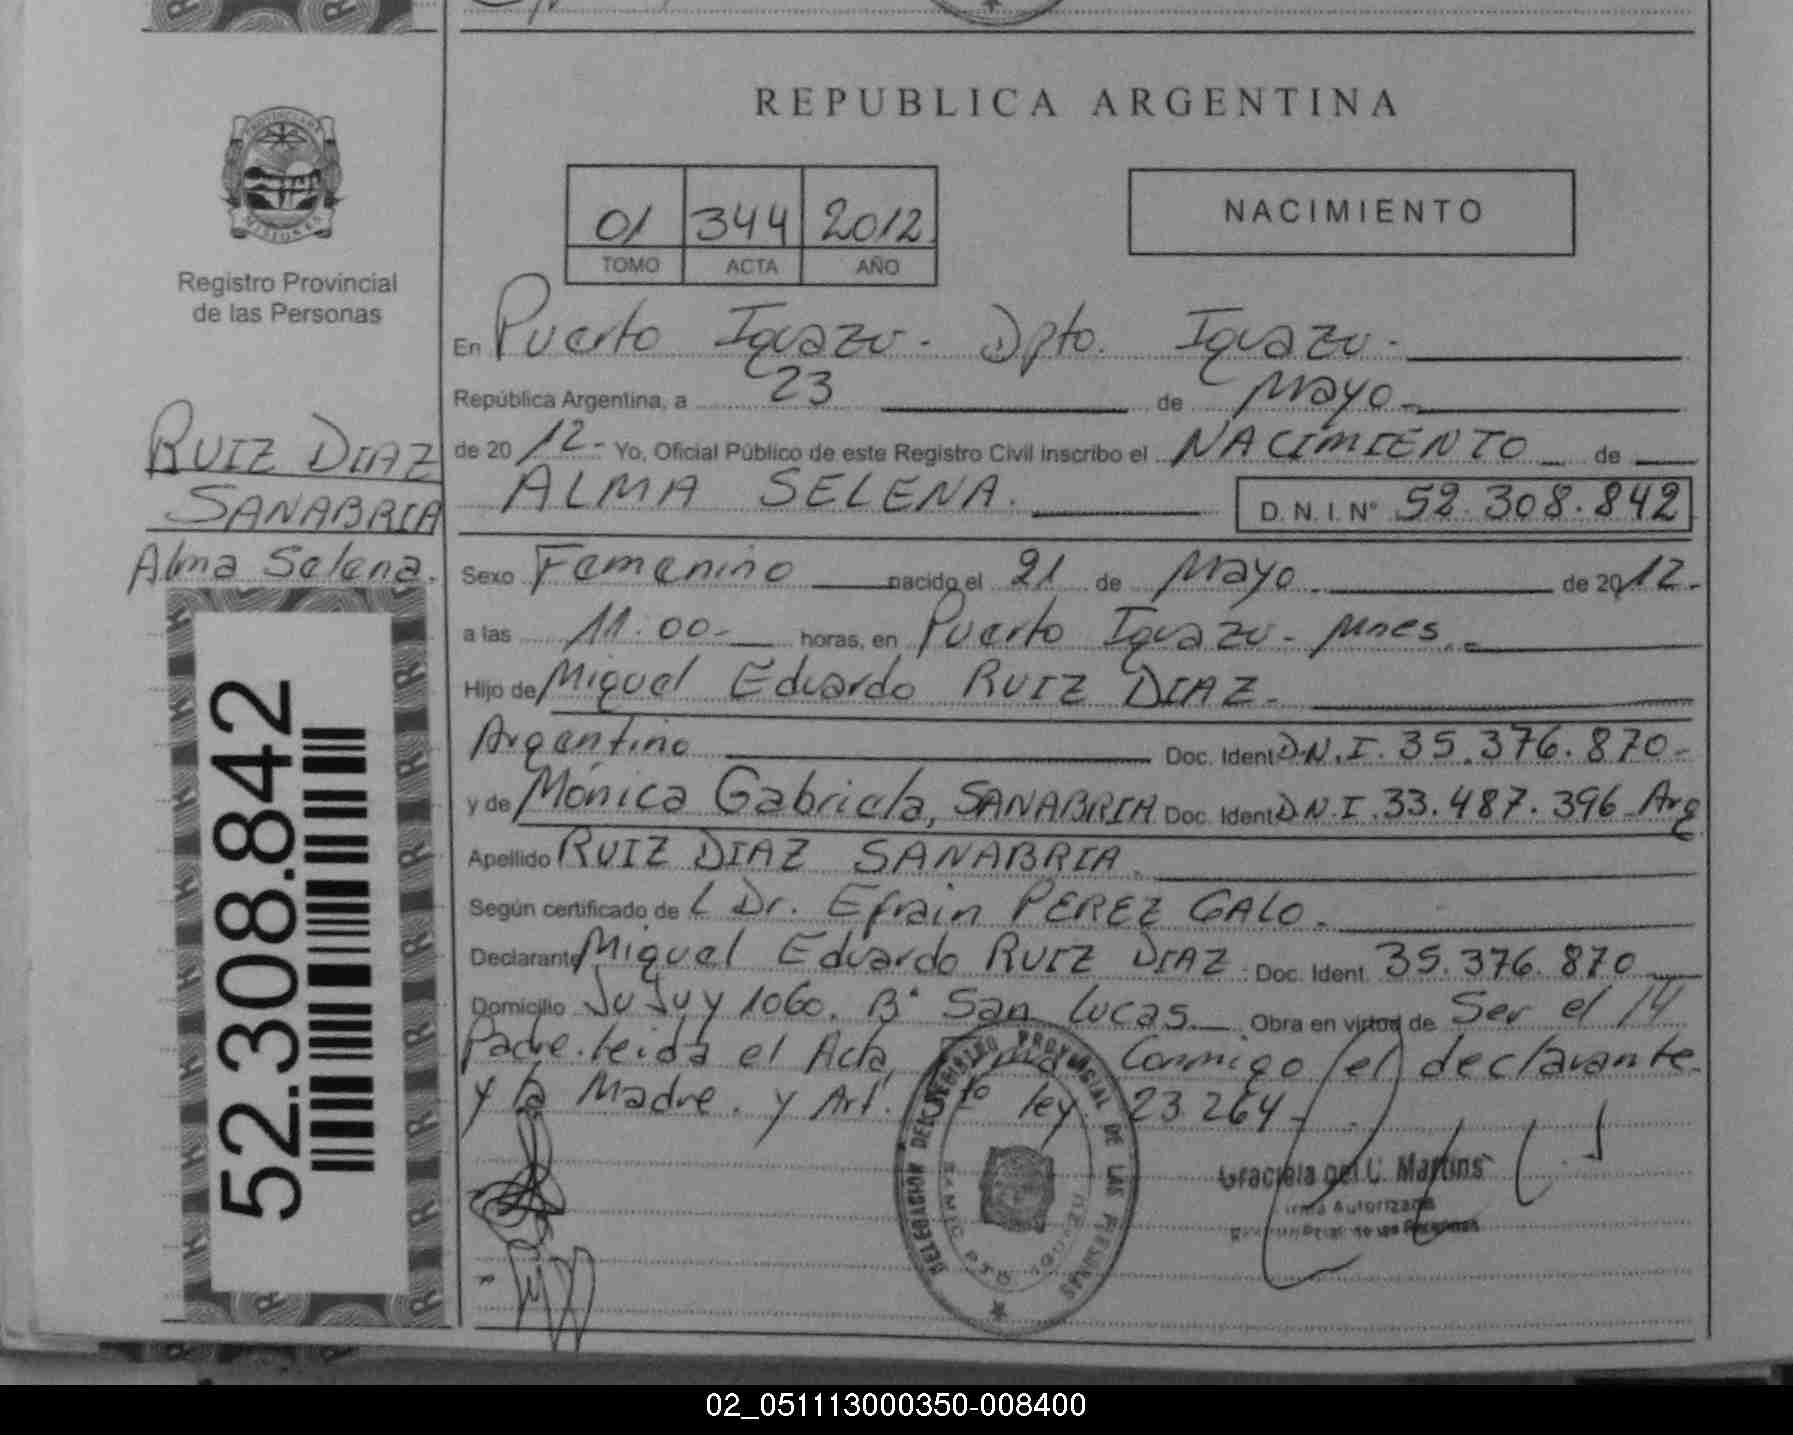 REPUBLICA ARGENTINA
01 344 2012
TOMO ACTA AÑO
NACIMIENTO
Registro Provincial
de las Personas
RUIZ DIAZ
SANABRIA
Alma Selena.
52.308.842
En Puerto Iguazu - Dpto. Iguazu -
República Argentina, a 23 de Mayo -
de 2012 - Yo, Oficial Público de este Registro Civil inscribo el NACIMIENTO de
ALMA SELENA. D. N. I. N° 52.308.842
Sexo Femenino nacido el 21 de Mayo de 2012 -
a las 11:00 - horas, en Puerto Iguazu - Mnes. -
Hijo de Miguel Eduardo RUIZ DIAZ -
Argentino Doc. Ident D.N.I. 35.376.870 -
y de Mónica Gabriela, SANABRIA Doc. Ident D.N.I. 33.487.396 Arg
Apellido RUIZ DIAZ SANABRIA.
Según certificado de L Dr. Efrain PEREZ GALO -
Declarante Miguel Eduardo RUIZ DIAZ Doc. Ident. 35.376.870
Domicilio JuJuy 1060. B° San Lucas Obra en virtud de Ser el
Padre. leida el Acta, Conmigo el declarante
y la Madre. y Art. ley 23.264 -
DELEGACION DEL REGISTRO PROVINCIAL DE LAS PERSONAS
IGUAZU
Graciela del C. Martins
Firma Autorizada
de las Personas
02_051113000350-008400